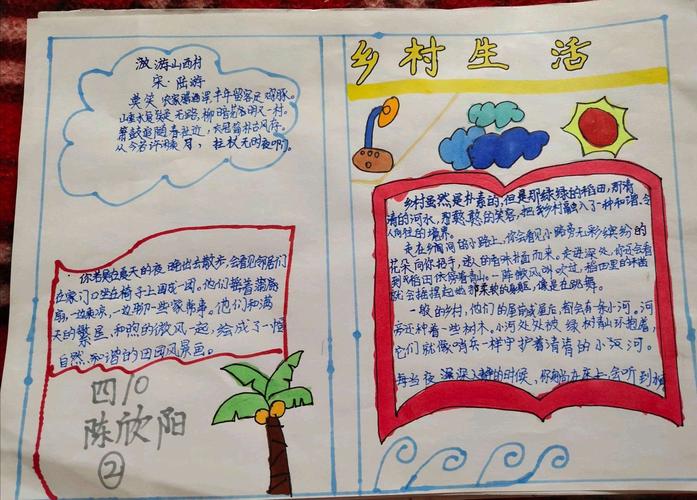 游山西村
宋·陆游
莫笑农家腊酒浑丰年留客足鸡豚。
山重水复疑无路,柳暗花明又一村。
箫鼓追随春社近,衣冠简朴古风存。
从今若许闲乘月,拄杖无时夜叩门。
你若是在夏天的夜晚出去散步,会看见邻居们
在家门口坐在椅子上围成一团。他们拿着蒲扇
扇,一边乘凉,一边聊一些家常事。他们和满
天的繁星,和煦的微风一起,绘成了一幅
自然、和谐的田园风景画。
四10
陈欣阳
②
乡村生活
乡村虽然是朴素的,但是那绿绿的稻田,清
清的河水,憨憨的笑容,把乡村融入了一种和谐,令
人向往的境界。
走在乡间的小路上,你会看见小路旁五彩缤纷的
花朵向你招手,迷人的香味扑面而来。走进深处,你还会看
到稻田依偎着青山。一阵微风吹过,稻田里的
就会摇摆起他那柔软的身躯,像是在跳舞。
一般的乡村,他们的屋前或屋后,都会有一条小河。河
旁还种着一些树木。小河处处被绿树青山环抱着,
它们就像哨兵一样守护着清清的小河。
每当夜深人静的时候,你躺在床上,会听到